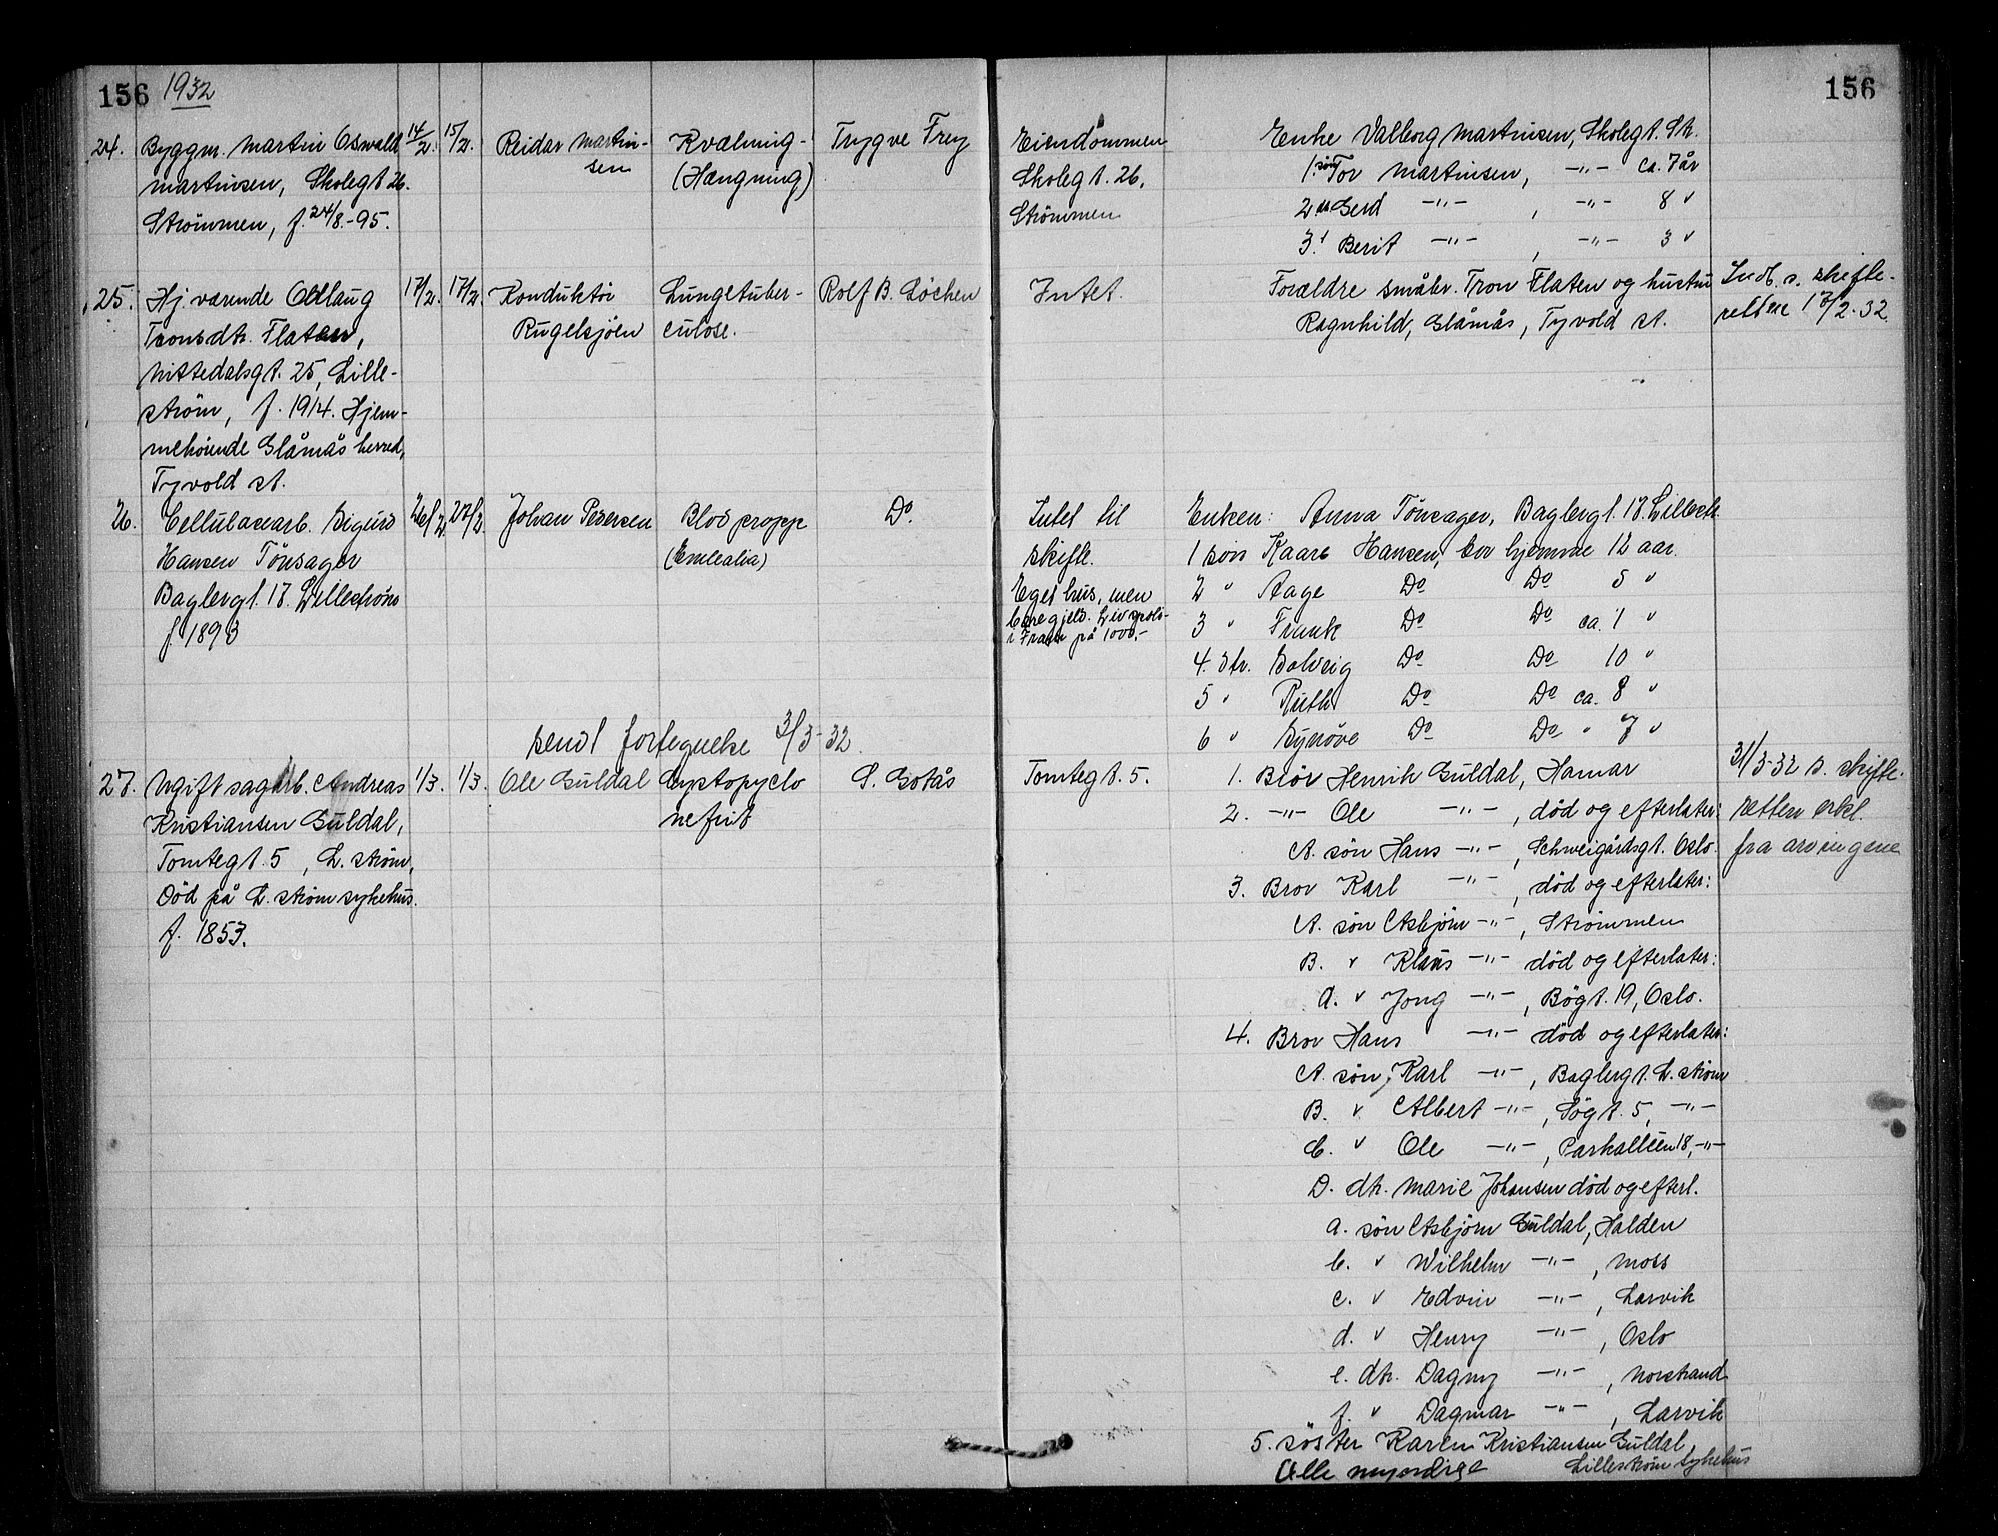 156 1932
24. Byggm. Martin Oswald 14/2. 15/2. Reidar Martin- Kvælning- Trygve Frey
Martinsen, Skolegt 26. sen (Hængning)
Strømmen, f. 24/8.-95.
25. Hj. værende Oddlaug 17/2. 17/2. Konduktør Lungetuber- Rolf B. Løchen
Tronsdtr. Flaten, Rugelsjøen culose.
Nittedalsgt. 25, Lille-
strøm, f. 1914. Hjem-
mehørende Glåmås herred,
Tyvold st.
26. Cellulosearb. Sigurd 26/2. 27/2 Johan Pedersen Blodpropp Do
Hansen Tønsager
Baglergt. 17. Lillestrøm
f. 1893
sendt fortegnelse 3/3-32.
27. Ugift sagarb. Andreas 1/3. 1/3. Ole Guldal Cystopyelo S. Gotås
Kristiansen Guldal, nefrit
Tomtegt. 5, L. strøm,
Død på L. strøm sykehus.
f. 1853.
156
Eiendommen Enke Valborg Martinsen, Skolegt. St.
Skolegt. 26, 1. søn Tor Martinsen, -"- ca. 7 år
Strømmen 2 Gerd -"- , -"- 8 "
3. Berit -"- , -"- 3 "
Intet. Forældre småbr. Tron Flaten og hustru Indb. s. skifte-
Ragnhild, Glåmås, Tyvold st. retten 17/2-32.
Intet til Enken: Anna Tønsager, Baglergt. 17. Lillestr.
skifte. 1 søn Kaare Hansen, bor hjemme 12 aar.
Eget hus, men 2 " Aage Do Do 5 "
bare gjeld. Livspolis- 3 " Frank Do Do ca. 1 "
i Fram på 1000,-
4. dtr. Solveig Do Do 10 "
5 " Ruth Do Do ca. 8 "
6 " Synøve Do Do " 7 "
Tomtegt. 5. 1. Bror Henrik Guldal, Hamar 31/3-32 s. skifte-
2. -"- Ole -"- , død og efterlater: retten erkl.
A. søn Hans -"- , Schweigårdsgt. Oslo. fra arvingene
3. Bror Karl -"- , død og efterlater:
A. søn Asbjørn -"- , Strømmen
B. " Klaus -"- død og efterlater:
a. " Jong -"- , Bøgt. 19, Oslo.
4. Bror Hans -"- død og efterlater:
A. søn Karl -"- , Baglergt. L. strøm
B. " Albert -"- , Søgt. 5, -"-
C. " Ole -"- , Parkalléen 18, -"-
D. dtr. Marie Johansen død og efterl.
a. søn Asbjørn Guldal, Halden
b. " Wilhelm -"- , Moss
c. " Edvin -"- , Larvik
d. " Henry -"- , Oslo
e. dtr. Dagny -"- , Norstrand
f. " Dagmar -"- , Larvik
5. søster Karen Kristiansen Guldal,
Alle myndige Lillestrøm sykehus